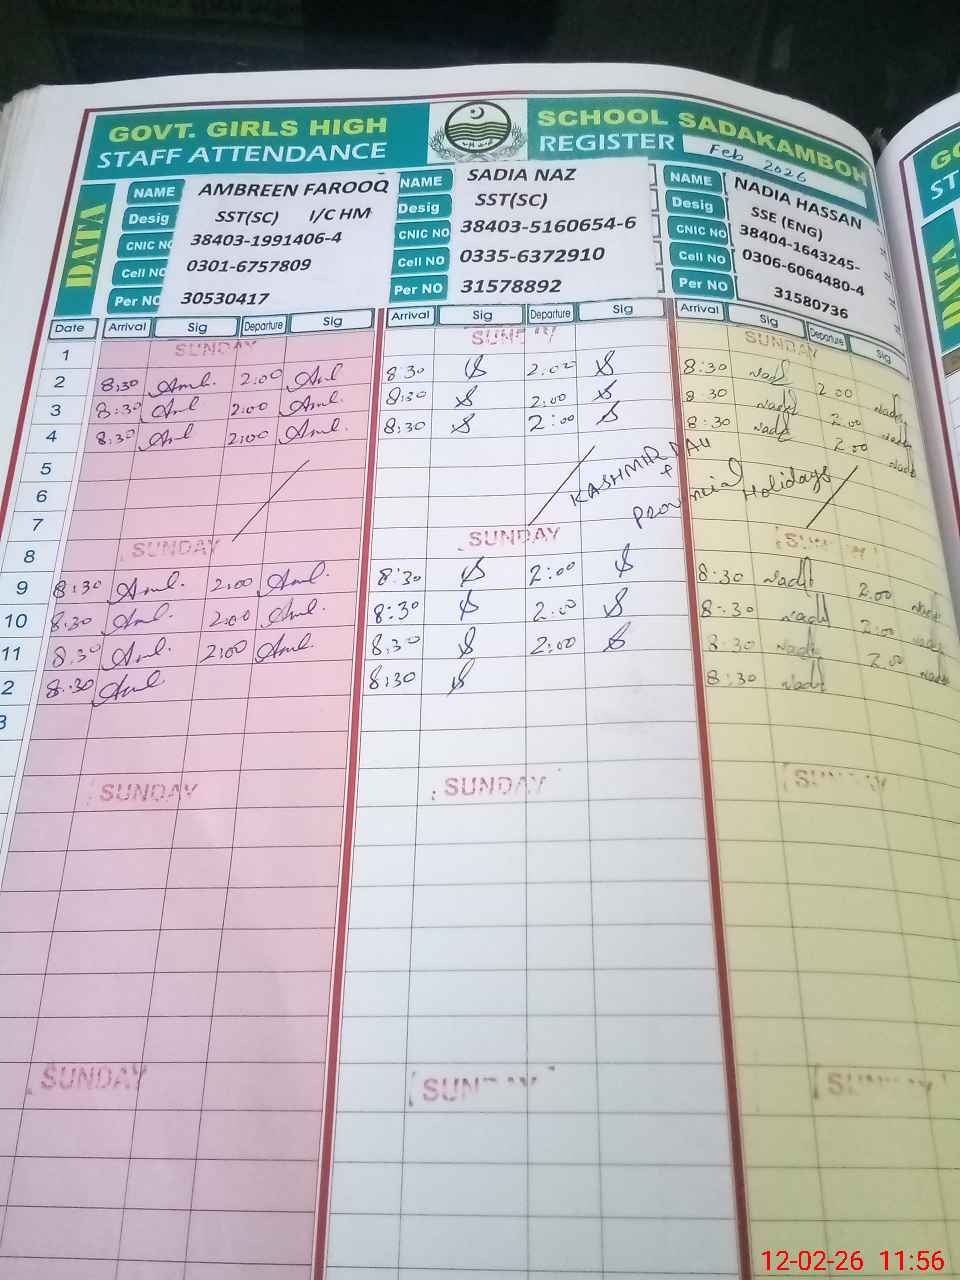 GOVT. GIRLS HIGH SCHOOL SADAKAMBOH
STAFF ATTENDANCE REGISTER Feb 2026
DATA
NAME AMBREEN FAROOQ NAME SADIA NAZ NAME NADIA HASSAN
Desig SST(SC) I/C HM Desig SST(SC) Desig SSE (ENG)
CNIC NO 38403-1991406-4 CNIC NO 38403-5160654-6 CNIC NO 38404-1643245-
Cell NO 0301-6757809 Cell NO 0335-6372910 Cell NO 0306-6064480-4
Per NO 30530417 Per NO 31578892 Per NO 31580736
Date Arrival Sig Departure Sig Arrival Sig Departure Sig Arrival Sig Departure Sig
1 SUNDAY SUNDAY SUNDAY
2 8:30 2:00 8:30 2:00 8:30 2:00
3 8:30 2:00 8:30 2:00 8:30 2:00
4 8:30 2:00 8:30 2:00 8:30 2:00
5 KASHMIR DAY
6 +
7 Provincial Holidays
8 SUNDAY SUNDAY SUNDAY
9 8:30 2:00 8:30 2:00 8:30 2:00
10 8:30 2:00 8:30 2:00 8:30 2:00
11 8:30 2:00 8:30 2:00 8:30 2:00
2 8:30 8:30 8:30
3
SUNDAY SUNDAY SUNDAY
SUNDAY SUNDAY SUNDAY
12-02-26 11:56